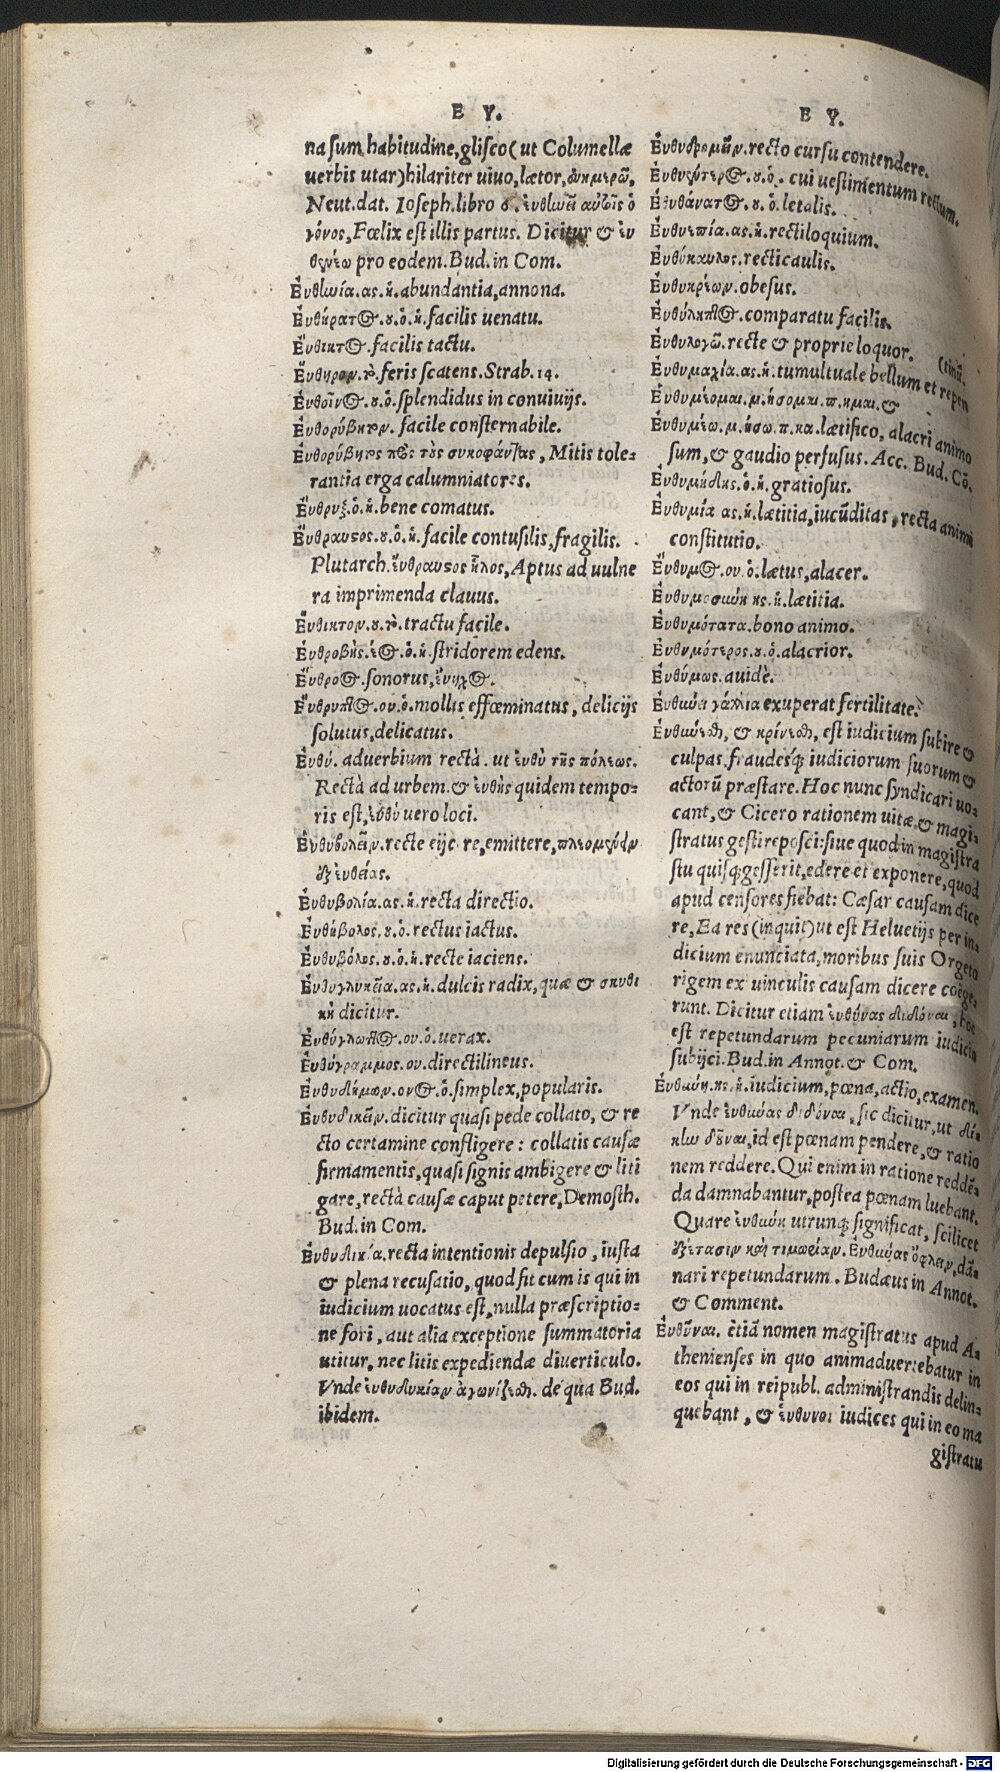 E Y.
na sum habitudine, glisco (ut Columellæ
uerbis utar) hilariter uiuo, lætor, εὐημερῶ,
Neut. dat. Ioseph. libro
γόνος, Fœlix est illis partus. Dicitur & εὐ
θηνέω pro eodem. Bud. in Com.
Εὐθηνία. ας. ἡ. abundantia, annona.
Εὐθήρατος. ου. ὁ. ἡ. facilis uenatu.
Εὔθικτος. facilis tactu.
Εὔθηρον. τὸ. feris scatens. Strab. 14.
Εὐθοῖνος. ου. ὁ. splendidus in conuiuijs.
Εὐθορύβητον. facile consternabile.
Εὐθορύβητος πρὸς τοὺς συκοφάντας, Mitis tole-
rantia erga calumniatores.
Εὔθριξ. ὁ. ἡ. bene comatus.
Εὔθραυστος. ου. ὁ. ἡ. facile contusilis, fragilis.
Plutarch. εὔθραυστος ἧλος, Aptus ad uulne
ra imprimenda clauus.
Εὔθικτον. ου. τὸ. tractu facile.
Εὐθροβὴς. έος. ὁ. ἡ. stridorem edens.
Εὔθροος. sonorus, εὔηχος.
Εὔθρυπτος. ου. ὁ. mollis effœminatus, delicijs
solutus, delicatus.
Εὐθύ. aduerbium rectà. ut εὐθὺ τῆς πόλεως.
Rectà ad urbem. & εὐθὺς quidem tempo-
ris est, εὐθὺ uero loci.
Εὐθυβολεῖν. recte eijcere, emittere,
ἐξ εὐθείας.
Εὐθυβολία. ας. ἡ. recta directio.
Εὐθύβολος. ου. ὁ. rectus iactus.
Εὐθυβόλος. ου. ὁ. ἡ. recte iaciens.
Εὐθυγλυκεῖα. ας. ἡ. dulcis radix, quæ & σκυθι
κὴ dicitur.
Εὐθύγλωττος. ου. ὁ. uerax.
Εὐθύγραμμος. ου. directilineus.
Εὐθυδήμων. ονος. ὁ. simplex, popularis.
Εὐθυδικεῖν. dicitur quasi pede collato, & re
cto certamine confligere: collatis causæ
firmamentis, quasi signis ambigere & liti
gare, rectà causæ caput petere, Demosth.
Bud. in Com.
Εὐθυδικία. recta intentionis depulsio, iusta
& plena recusatio, quod fit cum is qui in
iudicium uocatus est, nulla præscriptio-
ne fori, aut alia exceptione summatoria
utitur, nec litis expediendæ diuerticulo.
Vnde εὐθυδικίαν ἀγωνίζεσθαι. de qua Bud.
ibidem.
E Y.
Εὐθυδρομεῖν. recto cursu contendere.
cui uestimentum rectum.
Εὐθυθάνατος. ου. ὁ. letalis.
Εὐθυεπία. ας. ἡ. rectiloquium.
Εὐθύκαυλος. recticaulis.
Εὐθυκρέων. obesus.
Εὐθύληπτος. comparatu facilis.
Εὐθυλογῶ. recte & proprie loquor.
(tinū.
Εὐθυμαχία. ας. ἡ. tumultuale bellum et repen
Εὐθυμέομαι. μ. ήσομαι. π. ημαι. &
Εὐθυμέω. μ. ήσω. π. κα. lætifico, alacri animo
sum, & gaudio perfusus. Acc. Bud. Cō.
Εὐθυμήδης. ὁ. ἡ. gratiosus.
Εὐθυμία ας. ἡ. lætitia, iucūditas, recta animi
constitutio.
Εὔθυμος. ου. ὁ. lætus, alacer.
Εὐθυμοσύνη ης. ἡ. lætitia.
Εὐθυμότατα. bono animo.
Εὐθυμότερος. ου. ὁ. alacrior.
Εὐθύμως. auidè.
exuperat fertilitate.
Εὐθύνεσθαι, & κρίνεσθαι, est iudicium subire &
culpas, fraudesq; iudiciorum suorum &
actorū præstare. Hoc nunc syndicari uo-
cant, & Cicero rationem uitæ & magi-
stratus gesti reposci: siue quod in magistra
stu quisq; gesserit, edere et exponere, quod
apud censores fiebat: Cæsar causam dice
re, Ea res (inquit) ut est Heluetijs per in-
dicium enunciata, moribus suis Orgeto
rigem ex uinculis causam dicere coëge-
runt. Dicitur etiam εὐθύνας διδόναι, hoc
est repetundarum pecuniarum iudicio
subijci. Bud. in Annot. & Com.
Εὐθύνη. ης. ἡ. iudicium, pœna, actio, examen.
Vnde εὐθύνας διδόναι, sic dicitur, ut δί-
κην δοῦναι, id est pœnam pendere, & ratio
nem reddere. Qui enim in ratione reddē-
da damnabantur, postea pœnam luebant.
Quare εὐθύνη utrunq; significat, scilicet
ἐξέτασιν καὶ τιμωρίαν. Εὐθύνας ὀφλεῖν, dā-
nari repetundarum. Budæus in Annot.
& Comment.
Εὐθῦναι. etiā nomen magistratus apud A-
thenienses in quo animaduertebatur in
eos qui in reipubl. administrandis delin-
quebant, & εὔθυνοι iudices qui in eo ma
gistratu
Digitalisierung gefördert durch die Deutsche Forschungsgemeinschaft - DFG